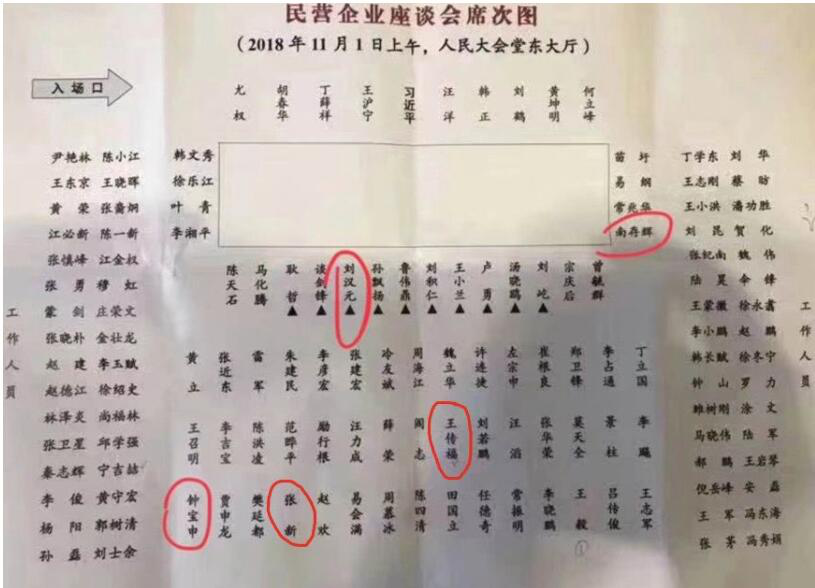 民营企业座谈会席次图
(2018年11月1日上午，人民大会堂东大厅)
入场口
尤权 胡春华 丁薛祥 王沪宁 习近平 汪洋 韩正 刘鹤 黄坤明 何立峰
韩文秀
徐乐江
叶青
李湘平
苗圩
易纲
常兆华
南存辉
尹艳林 陈小江
王东京 王晓晖
黄荣 张裔炯
江必新 陈一新
张慎峰 江金权
张勇 穆虹
蒙剑 庄荣文
张晓朴 金壮龙
赵建 李玉赋
赵德江 徐绍史
林泽炎 尚福林
张卫星 邱学强
秦志辉 宁吉喆
李俊 黄守宏
杨阳 郭树清
孙磊 刘士余
工作人员
陈天石 马化腾 耿哲▲ 谈剑锋▲ 刘汉元▲ 孙飘扬▲ 鲁伟鼎▲ 刘积仁▲ 王小兰▲ 卢勇▲ 汤晓鸥▲ 刘屹▲ 宗庆后 曾毓群
黄立 张近东 雷军 朱建民 李彦宏 张建宏 冷友斌 周海江 魏立华 许连捷 左宗申 崔根良 郑卫锋 李占通 丁立国
王召明 李吉宝 陈洪凌 范晔平 励行根 汪力成 薛荣 阎志 王传福 刘若鹏 汪滔 张华荣 莫天全 景柱 李飚
钟宝申 贾申龙 樊廷都 张新 赵欢 易会满 周慕冰 陈四清 田国立 任德奇 常振明 李晓鹏 王毅 吕传俊 王志军
①
丁学东 刘华
王志刚 蔡昉
王小洪 潘功胜
刘昆 贺化
张纪南 魏伟
陆昊 伞锋
王蒙徽 徐永翥
李小鹏 赵鹏
韩长赋 徐冬宁
钟山 罗力
雒树刚 涂文
马晓伟 陆军
郝鹏 王岩琴
倪岳峰 安磊
王军 冯东海
张茅 冯秀娟
工作人员